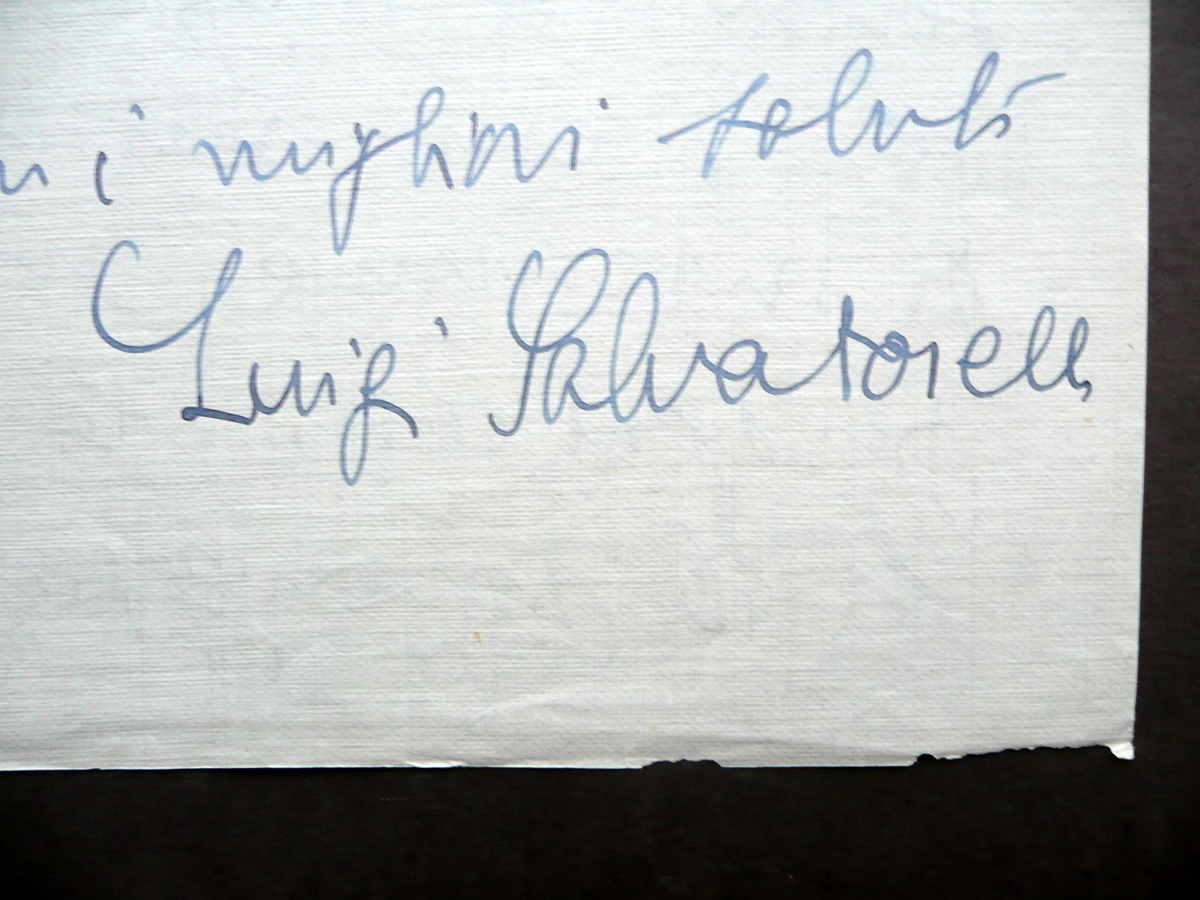 n i migliori saluti
Luigi Salvatorelli